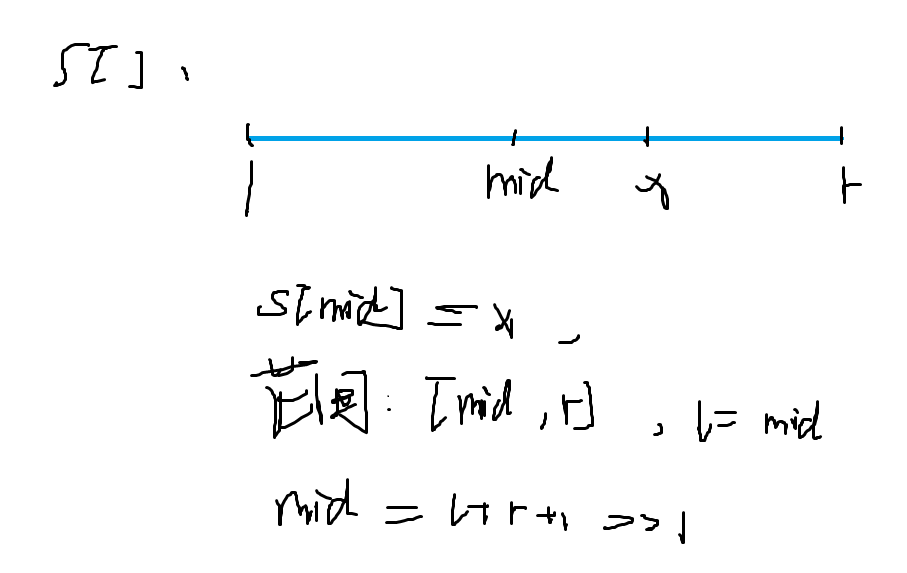 S[] :
l mid x r
S[mid] = x ,
区间: [mid , r] , l = mid
mid = l + r + 1 >> 1